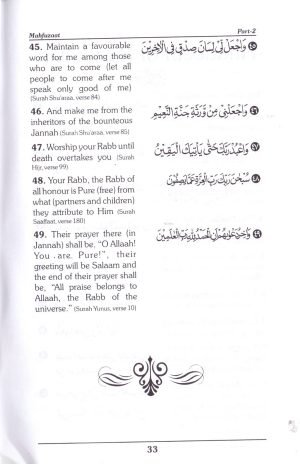 Mahfuzaat
Part-2
45. Maintain a favourable
word for me among those
who are to come (let all
people to come after me
speak only good of me)
(Surah Shu'araa, verse 84)
٤٥ وَاجْعَلْ لِّيْ لِسَانَ صِدْقٍ فِي الْاٰخِرِيْنَ
46. And make me from the
inheritors of the bounteous
Jannah (Surah Shu'araa, verse 85)
٤٦ وَاجْعَلْنِيْ مِنْ وَّرَثَةِ جَنَّةِ النَّعِيْمِ
47. Worship your Rabb until
death overtakes you (Surah
Hijr, verse 99)
٤٧ وَاعْبُدْ رَبَّكَ حَتّٰى يَاْتِيَكَ الْيَقِيْنُ
48. Your Rabb, the Rabb of
all honour is Pure (free) from
what (partners and children)
they attribute to Him (Surah
Saaffaat, verse 180)
٤٨ سُبْحٰنَ رَبِّكَ رَبِّ الْعِزَّةِ عَمَّا يَصِفُوْنَ
49. Their prayer there (in
Jannah) shall be, "O Allaah!
You are Pure!", their
greeting will be Salaam and
the end of their prayer shall
be, "All praise belongs to
Allaah, the Rabb of the
universe." (Surah Yunus, verse 10)
٤٩ وَاٰخِرُ دَعْوٰىهُمْ اَنِ الْحَمْدُ لِلّٰهِ رَبِّ الْعٰلَمِيْنَ
33